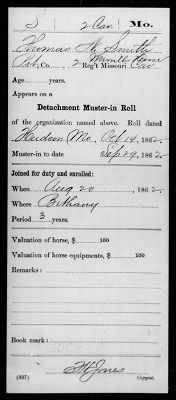 S 2 Cav. Mo.
Thomas H. Smith
Pvt., Co. 2 Reg't Missouri Cav
Age years.
Appears on a
Detachment Muster-in Roll
of the organization named above. Roll dated
Hudson Mo, Oct 14, 1862.
Muster-in to date Sep 29, 1862
Joined for duty and enrolled:
When Aug 20, 1862.
Where Bethany
Period 3 years.
Valuation of horse, $ 100
Valuation of horse equipments, $ 100
Remarks:
Book mark:
Jones
(337) Copyist.